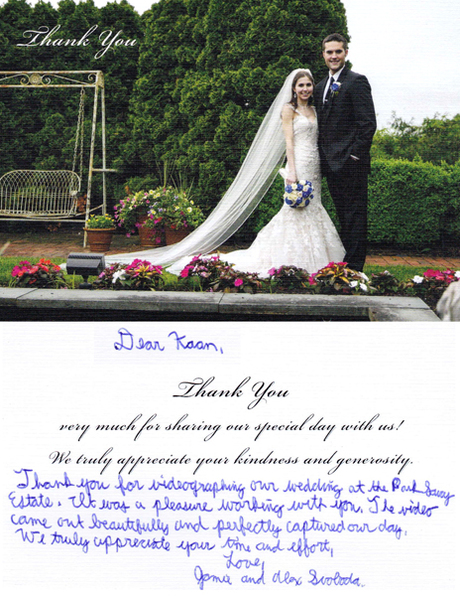 Thank You
Dear Kaan,
Thank You
very much for sharing our special day with us!
We truly appreciate your kindness and generosity.
Thank you for videographing our wedding at the Park Savoy
Estate. It was a pleasure working with you. The video
came out beautifully and perfectly captured our day.
We truly appreciate your time and effort,
Love,
and Alex Svoboda.